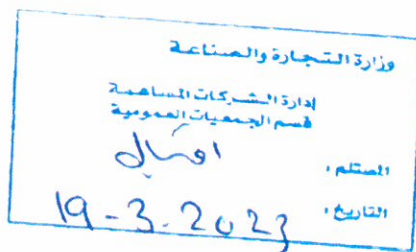 وزارة التجارة والصناعة
إدارة الشركات المساهمة
قسم الجمعيات العمومية
المستلم :
التاريخ : 19-3-2023